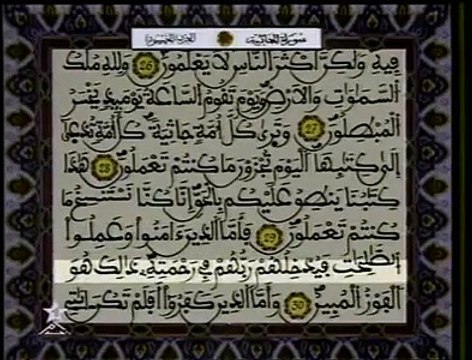 سورة الجاثية الحزب الخمسون
فيه ولكن أكثر الناس لا يعلمون 26 ولله ملك
السماوات والارض ويوم تقوم الساعة يومئذ يخسر
المبطلون 27 وترى كل أمة جاثية كل أمة تدعى
إلى كتابها اليوم تجزون ما كنتم تعملون 28 هذا
كتابنا ينطق عليكم بالحق إنا كنا نستنسخ ما
كنتم تعملون 29 فأما الذين ءامنوا وعملوا
الصالحات فيدخلهم ربهم في رحمته ذالك هو
الفوز المبين 30 وأما الذين كفروا أفلم تكن ءايتي